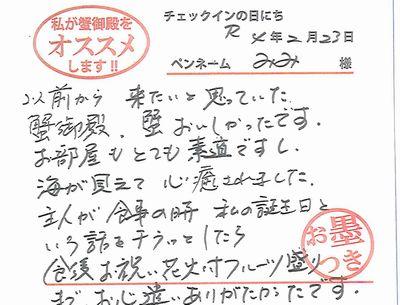 私が蟹御殿を
オススメ
します!!
チェックインの日にち
R 4年2月23日
ペンネーム みみ 様
以前から 来たいと思っていた
蟹御殿、蟹おいしかったです。
お部屋もとても素適ですし、
海が見えて 心癒されました。
主人が食事の時 私の誕生日と
いう話をチラッとしたら
食後お祝い花火付フルーツ盛り
まで、お心遣いありがたかったです。
お墨
つき